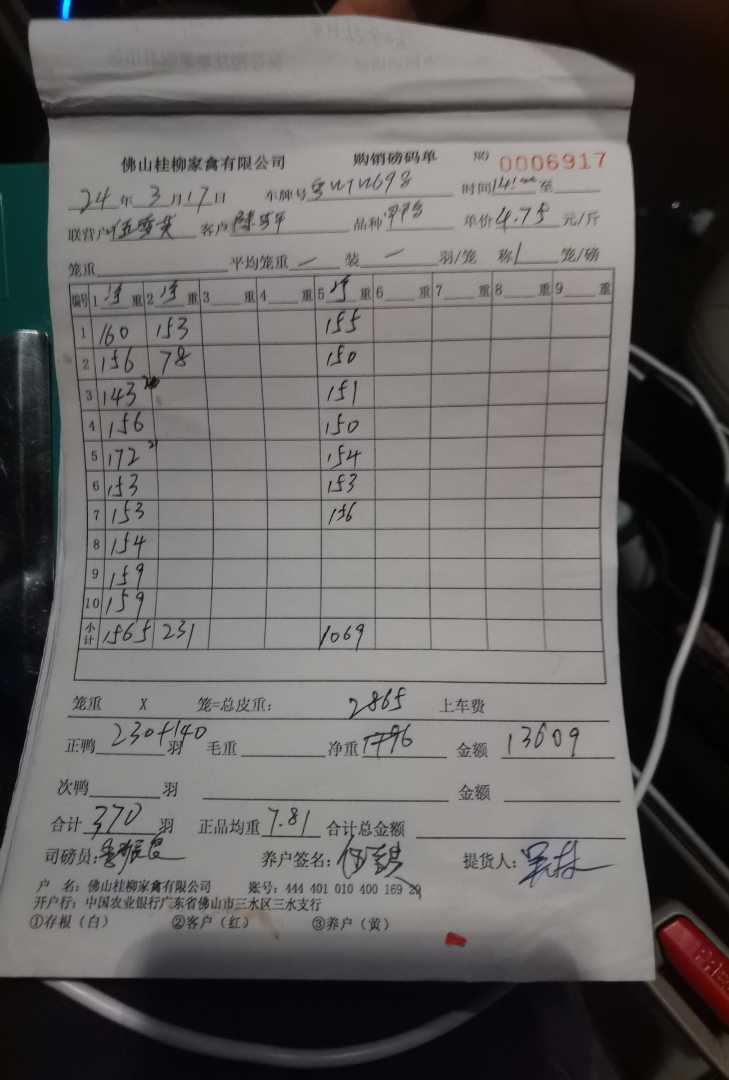 佛山桂柳家禽有限公司 购销磅码单 NO 0006917
24 年 3 月 17 日 车牌号 时间 14: 至
联营户 客户 品种 单价 4.75 元/斤
笼重 平均笼重 — 装 — 羽/笼 称 1 笼/磅
编号 1 净 重 2 净 重 3 重 4 重 5 净 重 6 重 7 重 8 重 9 重
1 160 153 155
2 156 78 150
3 143 151
4 156 150
5 172 21 154
6 153 153
7 153 156
8 154
9 159
10 159
小计 1565 231 1069
笼重 X 笼=总皮重: 2865 上车费
正鸭 230+140 羽 毛重 净重 金额 13609
次鸭 羽 金额
合计 370 羽 正品均重 7.81 合计总金额
司磅员: 养户签名: 提货人:
户 名: 佛山桂柳家禽有限公司 账号: 444 401 010 400 169 29
开户行: 中国农业银行广东省佛山市三水区三水支行
①存根（白） ②客户（红） ③养户（黄）